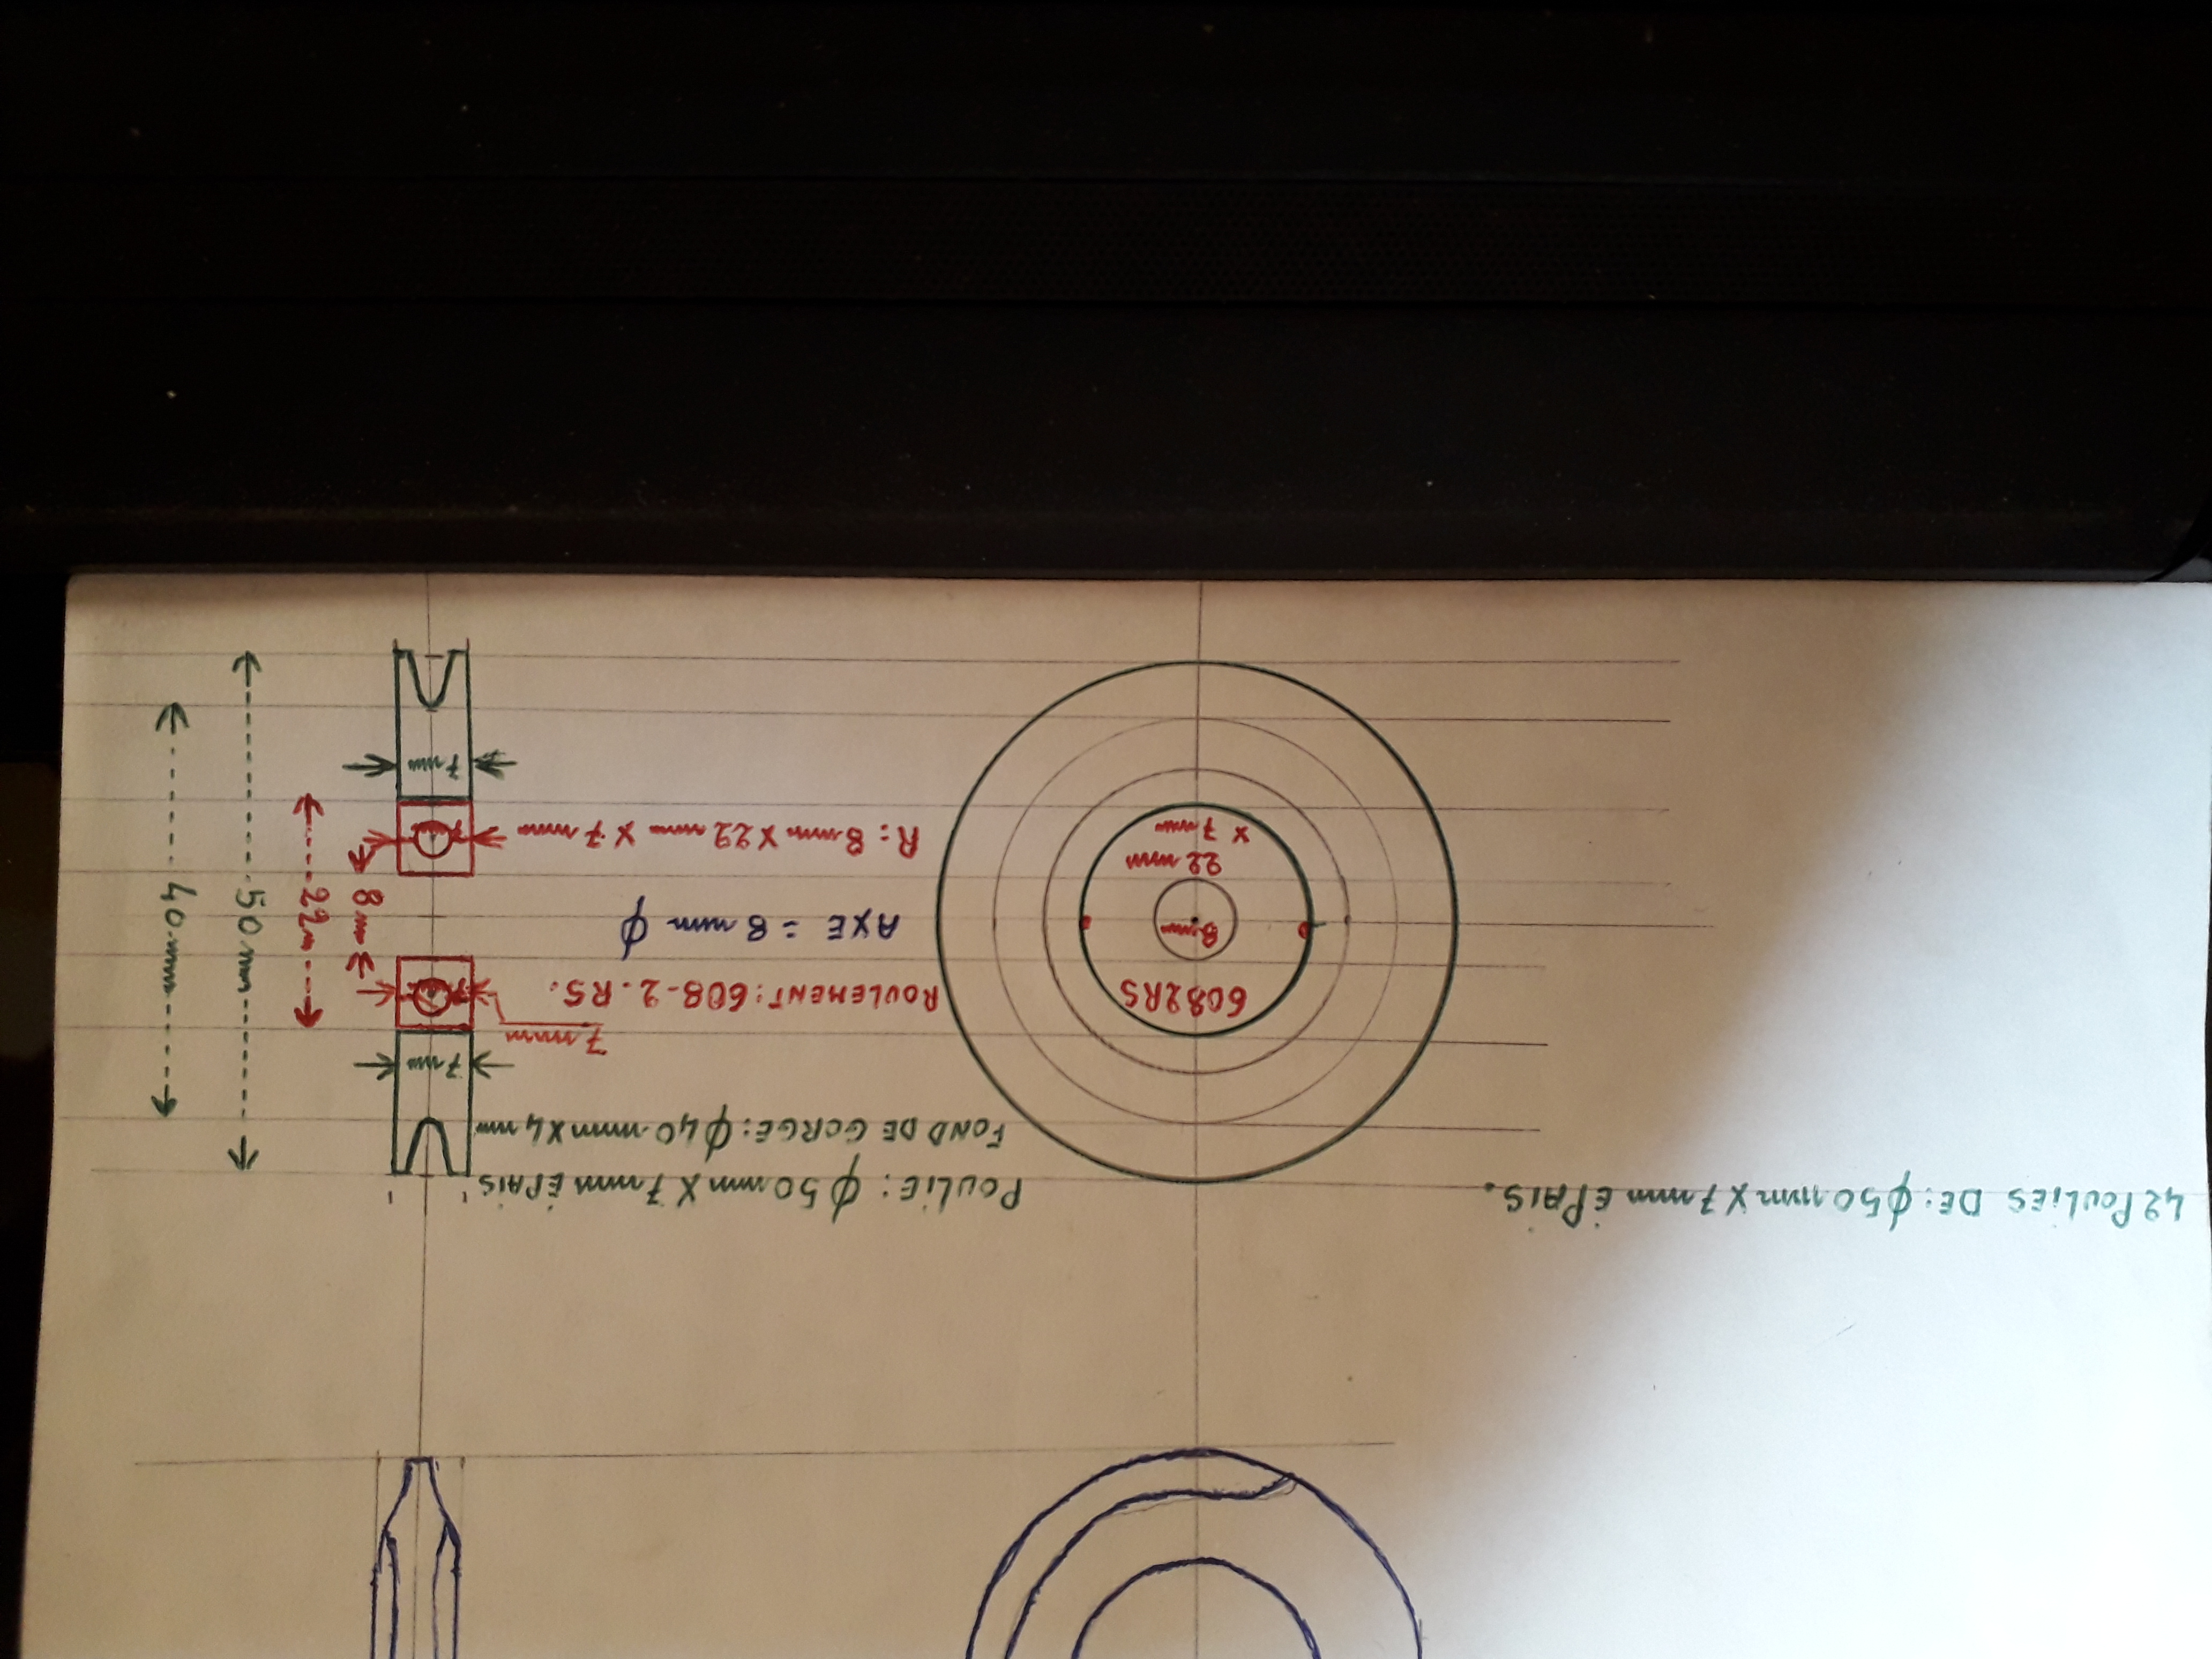 42 POULIES DE : ϕ50 mm X 7 mm ÉPAIS.
POULIE : ϕ 50 mm X 7 mm ÉPAIS
FOND DE GORGE : ϕ 40 mm X 4 mm
7 mm
7 mm
ROULEMENT : 608-2.RS.
7
AXE = 8 mm ϕ
R : 8 mm X 22 mm X 7 mm
7
7 mm
6082RS
8 mm
22 mm
X 7 mm
8 m
22 m
50 mm
40 mm